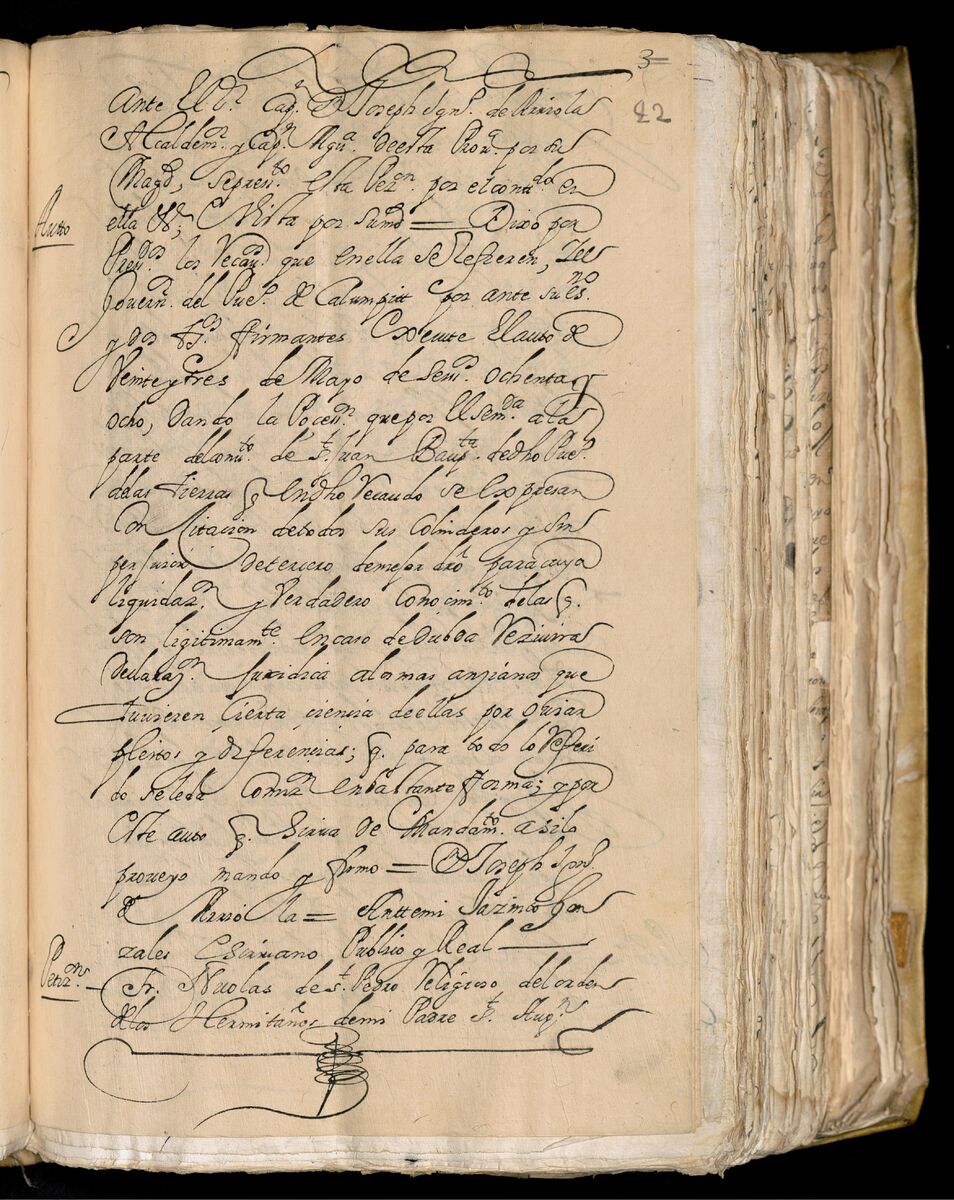 3
82
Ante El S.r Cap.n D. Joseph Ygn.o de Arriola
Alcaldem.r y Cap.n Mgu.a deesta Prou.a por su
Magd, sepresen.to esta Pez.on por elconten.do en
Autto
ella &; Vista por sumd = Dixo por
Presen.dos los Recau.dos que enella se Refieren, Iel
Gouern.r del Pue.o de Calumpit por ante su es.no
y dos t.gos firmantes Execute El auto de
Veinteytres de Mayo de Seis.os ochentay
ocho, Dando la Poces.on que por El se m.da a la
parte delcon.to de S. Juan Baup.ta dedho Pue.o
delas tierras q en dho Recaudo se Expresan
con Citacion detodos sus Colinderos y sin
perjuicio detercero demejor dro para cuya
liquidaz.on y Verdadero Conocim.to delas q.
son ligitimam.te encaso de Dubda Reziuira
Declaraz.on juridica alos mas anzianos que
tuuieren Cierta ciencia deellas por obiar
pleitos y diferencias; q. para todo lo Referi
do seleda Comiz.on enbastante forma; y por
Este auto q. Sirua de Mandam.to asilo
proueyo mando y firmo = D Joseph Ign.o
de Arriola = Anttemi Jazinto Gon
zales Escriuano Publico y Real
Petiz.on
Fr. Nicolas de S. Pedro Religioso del orden
delos Hermitaños demi Padre S. Aug.n